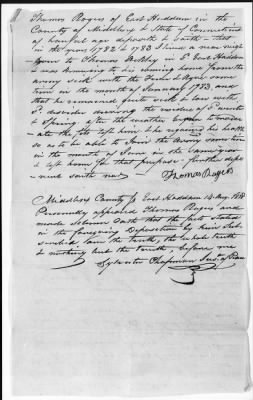 Thomas Rogers of East Haddam in the
County of Middlesex & State of Connecticut
of lawful age deposeth & saith that
in the years 1782 & 1783 I lived a near neigh
bour to Thomas in E. East Haddam
& was knowing to his coming home from the
army sick with the Fever & Ague some
time in the month of January 1783, and
that he remained quite sick & low with
s^d disorder during the residue of s^d winter
& Spring after the weather began to
ate the fits left him & he regained his health
so as to be able to join the Army some time
in the month of June in the same year
& left home for that purpose - further depo
nent saith not
Thomas Rogers
Middlesex County Ss East Haddam 14 Aug 18
Personally appeared Thomas Rogers and
made Solemn Oath that the facts stated
in the foregoing Deposition by him Sub
scribed are the truth, the whole truth
& nothing but the truth before me
Sylvester Chapman Just of Peace